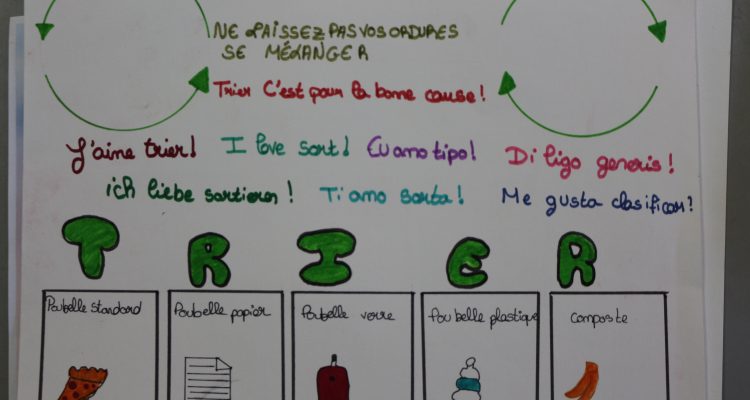 NE LAISSEZ PAS VOS ORDURES
SE MÉLANGER
Trier C'est pour la bonne cause !
J'aime trier ! I love sort ! Eu amo tipo ! Di ligo generis !
ich liebe sortieren ! Ti amo sorta ! Me gusta clasificar ?
TRIER
Poubelle standard Poubelle papier Poubelle verre Poubelle plastique Composte